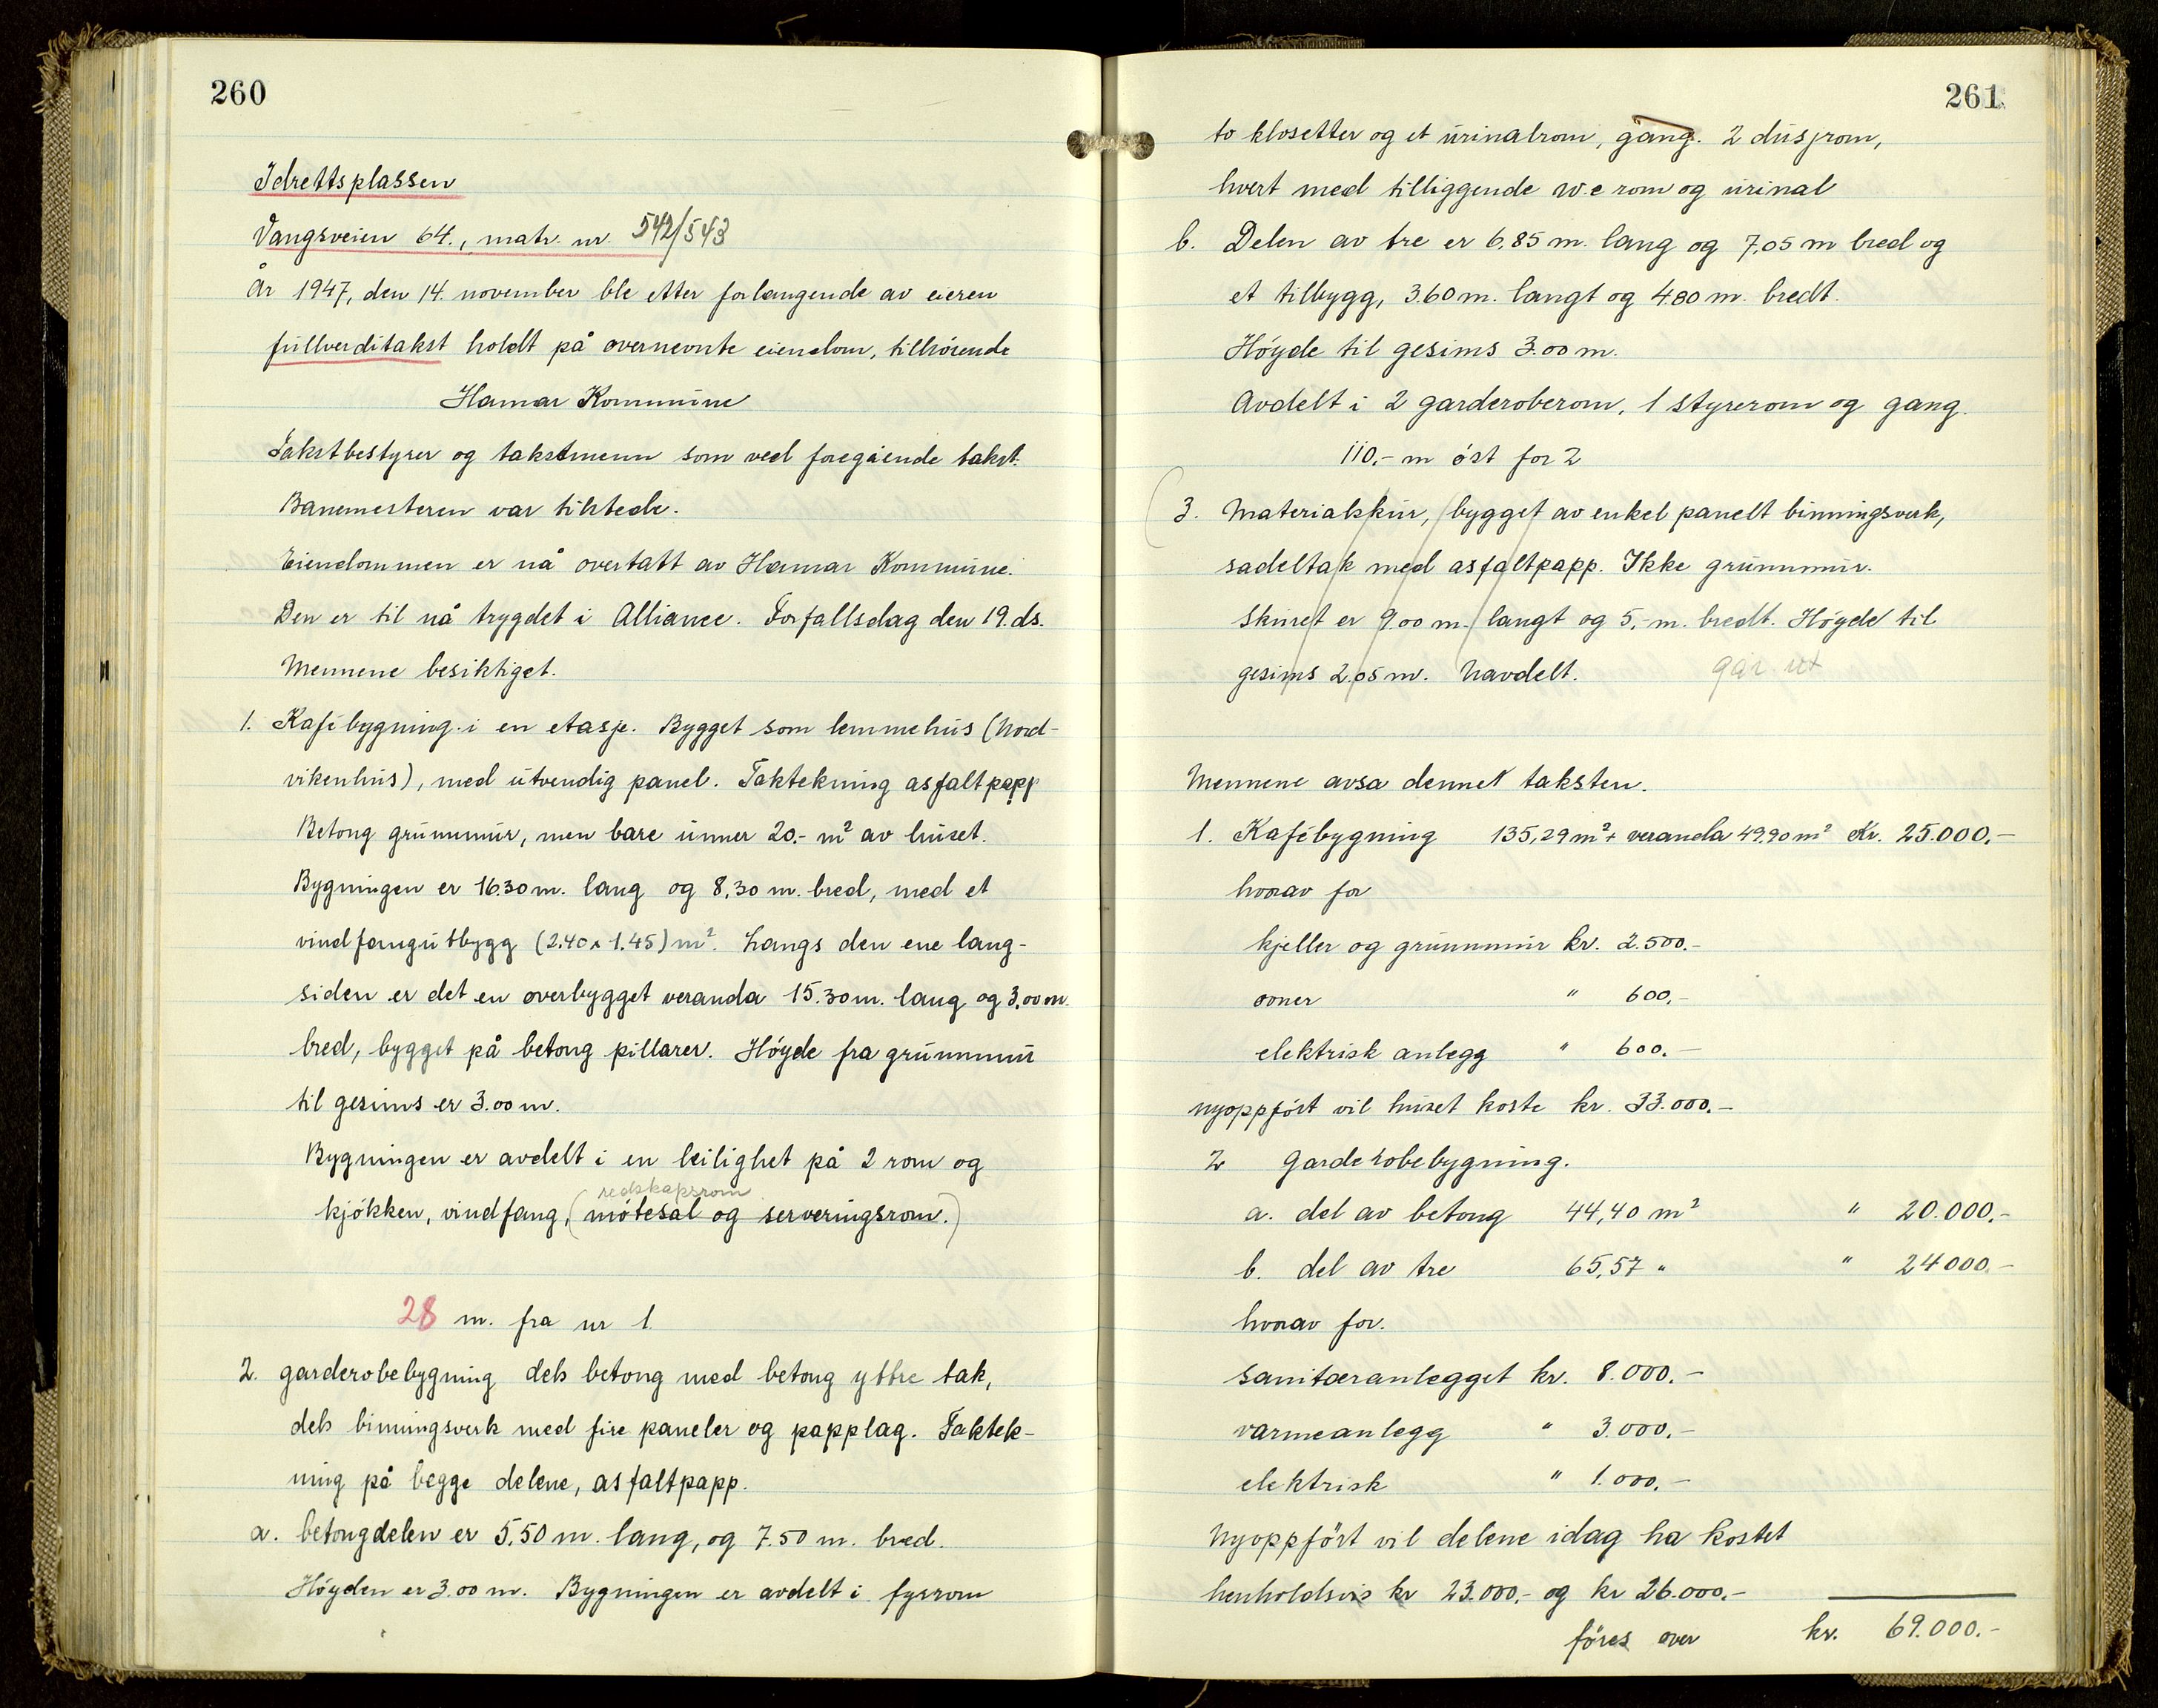 260
Idrettsplassen
Vangsveien 64., matr. nr. 542/543
År 1947, den 14. november ble etter forlangende av eieren
fullverditakst holdt på overnevnte eiendom, tilhörende
Hamar Kommune
Takstbestyrer og takstmenn som ved foregående takst.
Banemesteren var tilstede.
Eiendommen er nå overtatt av Hamar Kommune.
Den er til nå trygdet i Alliance. Forfallsdag den 19. ds.
Mennene besiktiget.
1. Kafébygning i en etasje. Bygget som lemmehus (Nord-
vikenhus), med utvendig panel. Taktekning asfaltpapp
Betong grunnmur, men bare unner 20.- m² av huset.
Bygningen er 16.30 m. lang og 8,30 m. bred, med et
vindfangutbygg (2.40 x 1.45) m². Langs den ene lang-
siden er det en overbygget veranda 15.30 m. lang og 3,00 m.
bred, bygget på betong pillarer. Höyde fra grunnmur
til gesims er 3.00 m.
Bygningen er avdelt i en leilighet på 2 rom og
redskapsrom
kjökken, vindfang, (mötesal og serveringsrom.)
28 m. fra nr 1.
2. garderobebygning dels betong med betong yttre tak,
dels binningsverk med fire paneler og papplag. Taktek-
ning på begge delene, asfaltpapp.
a. betongdelen er 5,50 m. lang, og 7.50 m. bred.
Höyden er 3.00 m. Bygningen er avdelt i fyrrom
261
to klosetter og et urinalrom, gang. 2 dusjrom,
hvert med tilliggende w.c rom og urinal
b. Delen av tre er 6,85 m. lang og 7,05 m bred og
et tilbygg, 3.60 m. langt og 4.80 m. bredt.
Höyde til gesims 3.00 m.
Avdelt i 2 garderoberom, 1 styrerom og gang.
110.- m öst for 2
3. Materialskur, bygget av enkel panelt binningsverk,
sadeltak med asfaltpapp. Ikke grunnmur.
Skuret er 9.00 m. langt og 5,- m. bredt. Höyde til
gesims 2.05 m. Uavdelt. går ut
Mennene avsa denne taksten.
1. Kafébygning 135,29 m² + veranda 49,90 m² Kr. 25.000,-
hvorav for
kjeller og grunnmur kr. 2.500.-
ovner " 600,-
elektrisk anlegg " 600.-
nyoppfört vil huset koste kr. 33.000.-
2 Garderobebygning.
a. del av betong 44,40 m² " 20.000.-
b. del av tre 65,57 " " 24000.-
hvorav for.
sanitæranlegget kr. 8.000.-
varmeanlegg " 3.000.-
elektrisk " 1.000.-
Nyoppfört vil delene idag ha kostet
henholdsvis kr 23.000,- og kr 26.000.-
föres over kr. 69.000.-